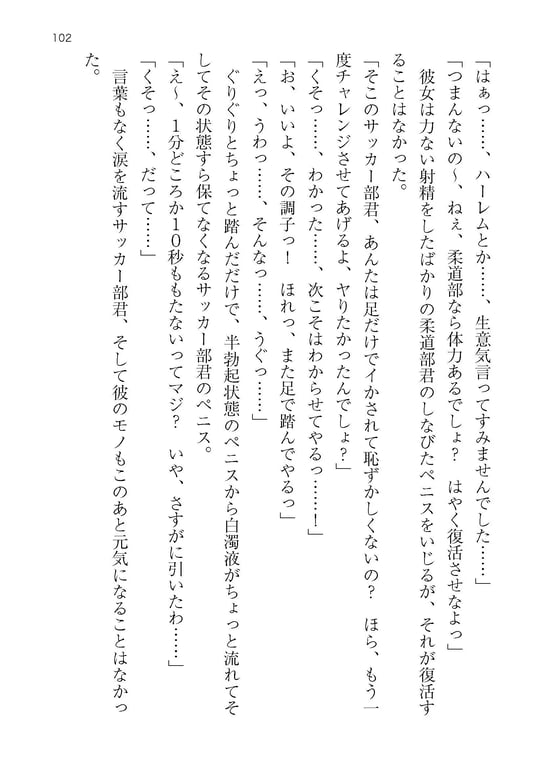 102
「はぁっ……、ハーレムとか……、生意気言ってすみませんでした……」
「つまんないの～、ねぇ、柔道部なら体力あるでしょ？　はやく復活させなよっ」
　彼女は力ない射精をしたばかりの柔道部君のしなびたペニスをいじるが、それが復活す
ることはなかった。
「そこのサッカー部君、あんたは足だけでイかされて恥ずかしくないの？　ほら、もう一
度チャレンジさせてあげるよ、ヤりたかったんでしょ？」
「くそっ……、わかった……、次こそはわからせてやるっ……！」
「お、いいよ、その調子っ！　ほれっ、また足で踏んでやるっ」
「えっ、うわっ……、そんなっ……、うぐっ……」
　ぐりぐりとちょっと踏んだだけで、半勃起状態のペニスから白濁液がちょっと流れてそ
してその状態すら保てなくなるサッカー部君のペニス。
「え～、１分どころか１０秒ももたないってマジ？　いや、さすがに引いたわ……」
「くそっ……、だって……」
　言葉もなく涙を流すサッカー部君、そして彼のモノもこのあと元気になることはなかっ
た。